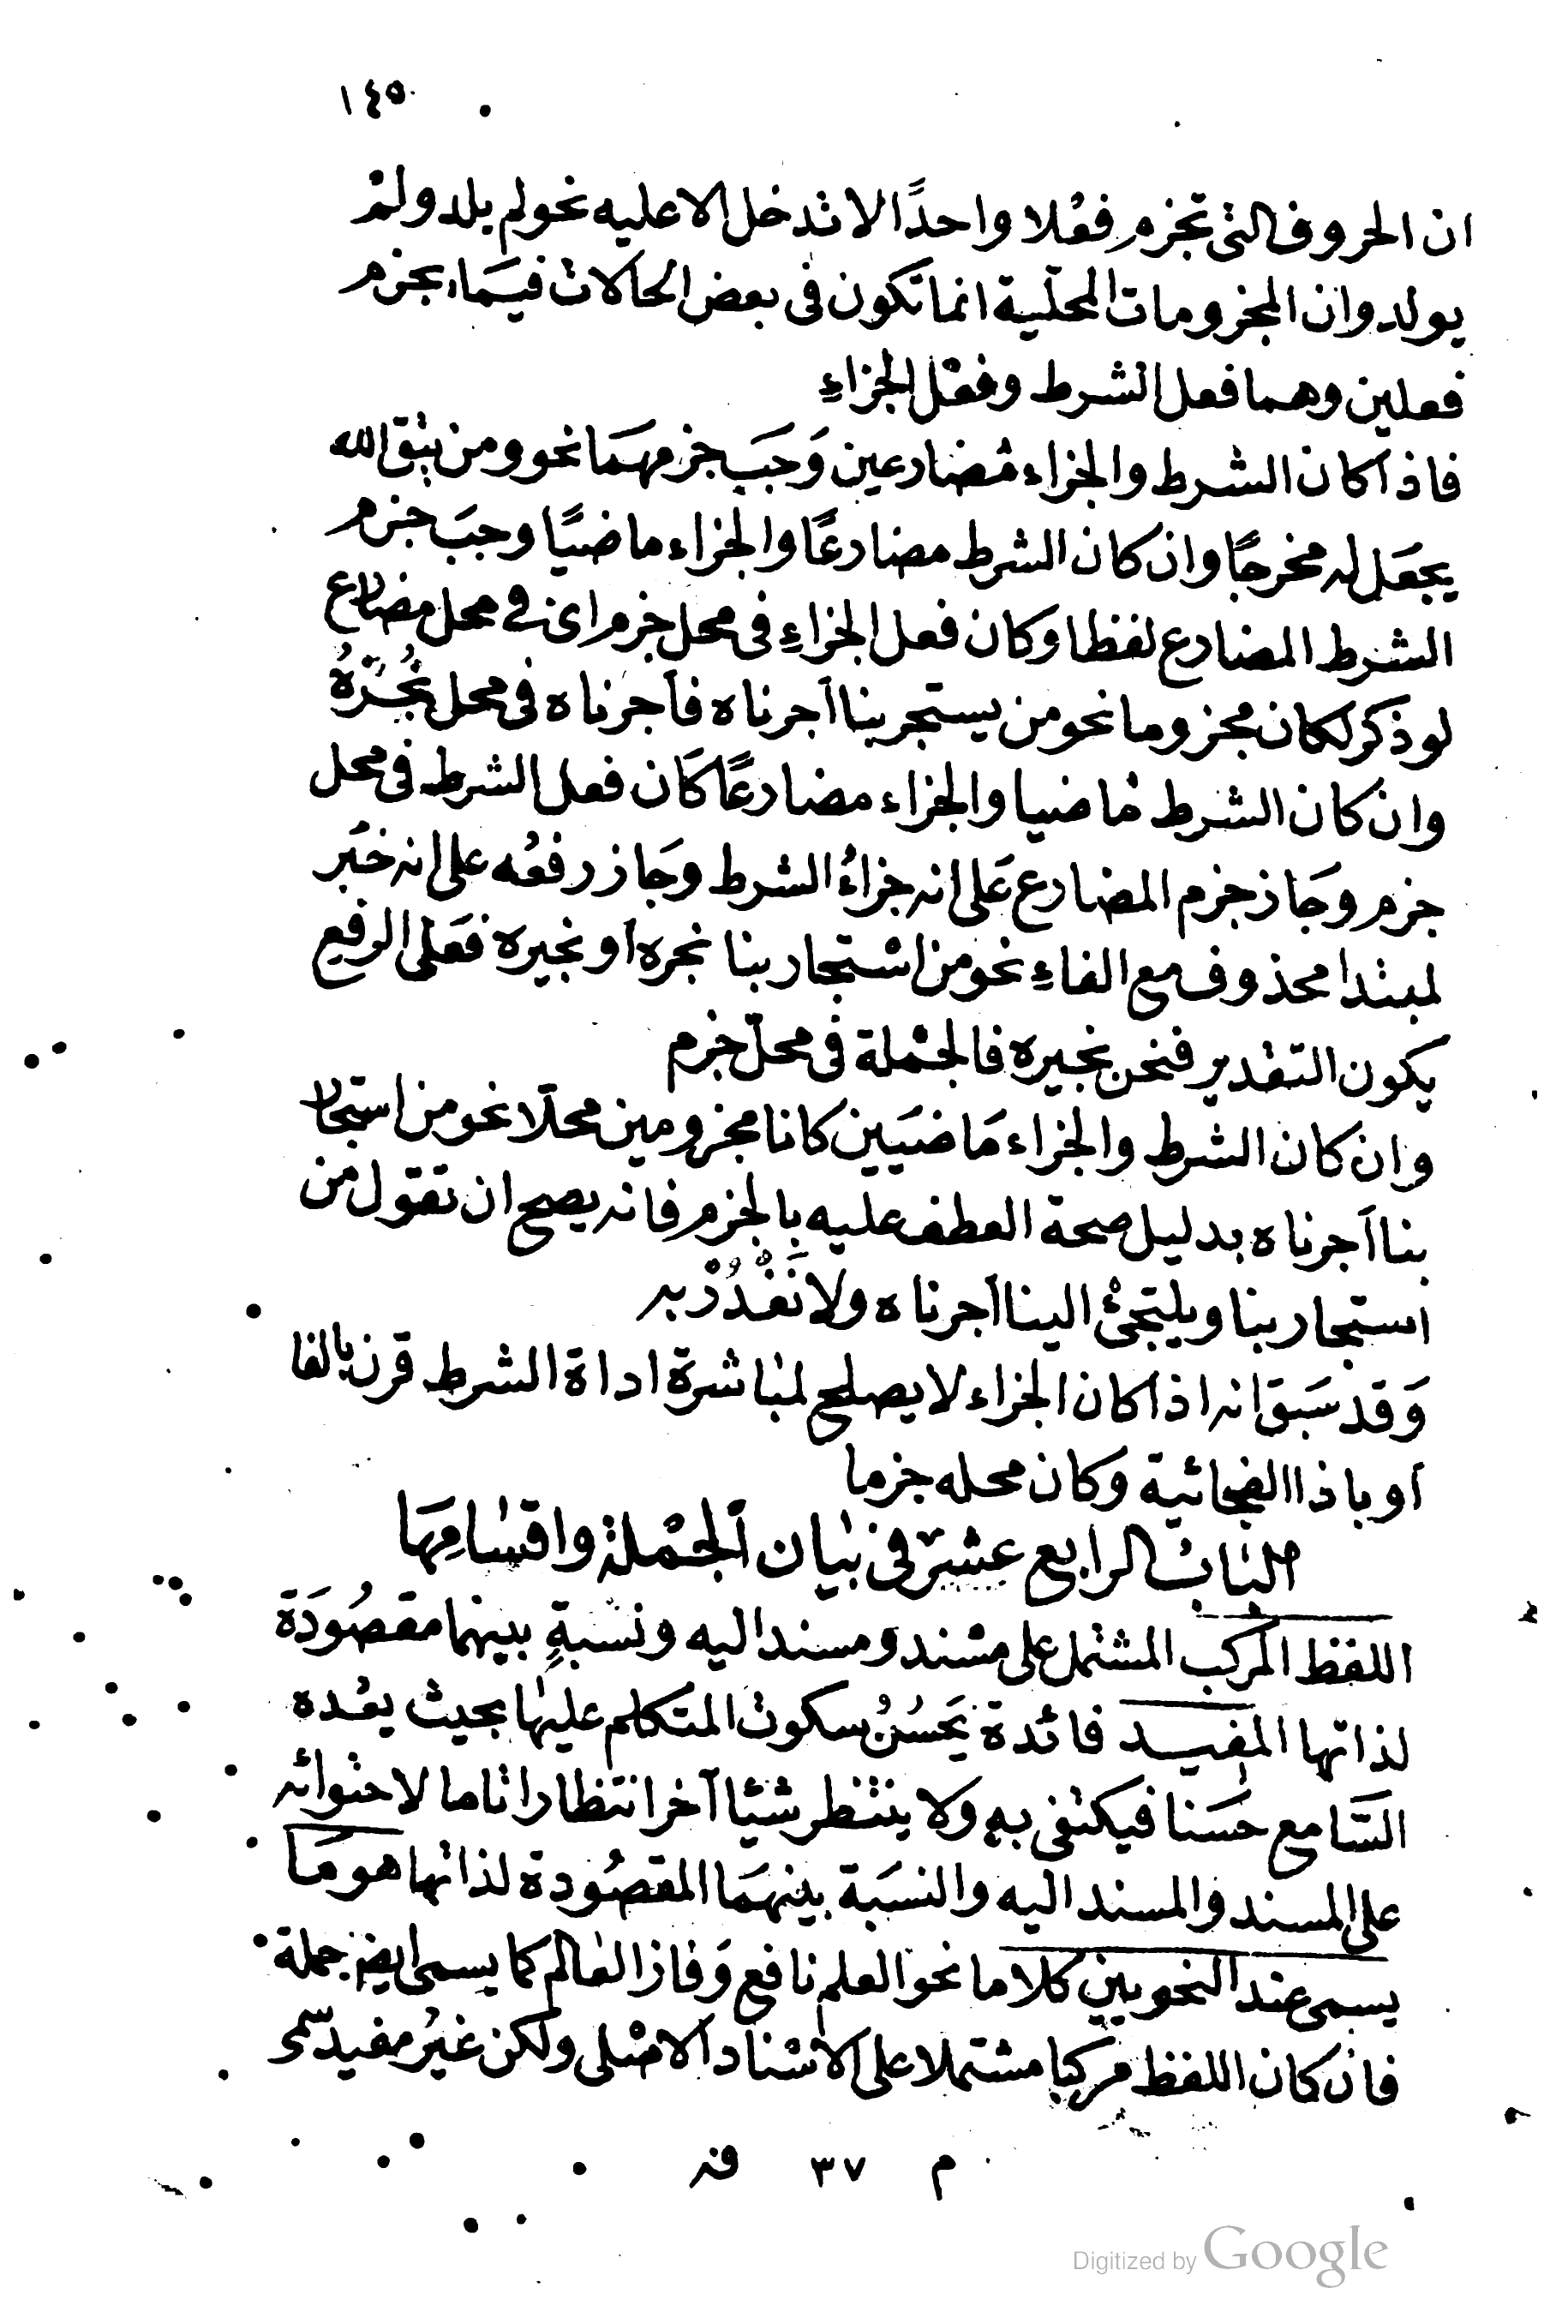 ١٤٥
ان الحروف التى تجزم فعْلا واحدًا لا تدخل الا عليه نحو لم يلد ولمْ
يولد وان المجزومات المحلّية انما تكون فى بعض الحالات فيمَا يجزم
فعلين وهما فعل الشرط وفعْل الجزاءِ
فاذا كان الشرط والجزاء مُضارعين وَجَبَ جزمهمَا نحو ومن يتق الله
يجعَل له مخرجًا وان كان الشرط مضارعًا والجزاء ماضيًا وجبَ جزم
الشرط المضارع لفظا وكان فعل الجزاءِ فى محل جزم اى فى محل مضارع
لو ذكر لكان مجزوما نحو من يستجر بنا آجرناه فآجرْناه فى محل نُجُرّهُ
وان كان الشرط مَاضيا والجزاء مضارعًا كَان فعل الشرط فى محل
جزم وجَاز جزم المضارع عَلى انه جزاءُ الشرط وجَاز رفعُه على انه خبَر
لمبتدا محذوف مع الفاءِ نحو من اسْتجار بنا نجره او نجيره فعَلى الرفع
يكون التقدير فنحن نجيره فالجمْلة فى محلّ جزم
وان كان الشرط والجزاء مَاضيَيين كانا مجزومين محلّا نحو من استجار
بنا آجرناه بدليل صحة العطف عليه بالجزم فانه يصح ان تقول من
استجار بنا ويلتجئْ الينا آجرناه ولا نَغْدُرْ به
وَقد سَبق انه اذا كان الجزاء لا يصلح لمباشرة اداة الشرط قرن بالفا
او باذا الفجائية وكان محله جزما
البَابُ الرابع عشر فى بيَان الجمْلة واقسَامِهَا
اللفظ المركب المشتمل على مسْند ومسند اليه ونسْبةٍ بينهما مقصُودَة
لذاتها المفيد فائدة يَحسُنُ سكوت المتكلم عليهَا بحيث يعُده
السَّامع حَسَنا فيكتفى به ولا ينتْظر شيْئا آخر انتظارا تاما لاحتوائه
على المسند والمسند اليه والنسبَة بينهمَا المقصُودة لذاتها هو مَا
يسمى عند النحويين كلاما نحو العلم نافع وَفاز العَالم كما يسمى ايضا جملة
فان كان اللفظ مركبا مشتملا على الاسْناد الاصْلى ولكن غيرُ مفيد سمى
م ٣٧ فه
Digitized by Google